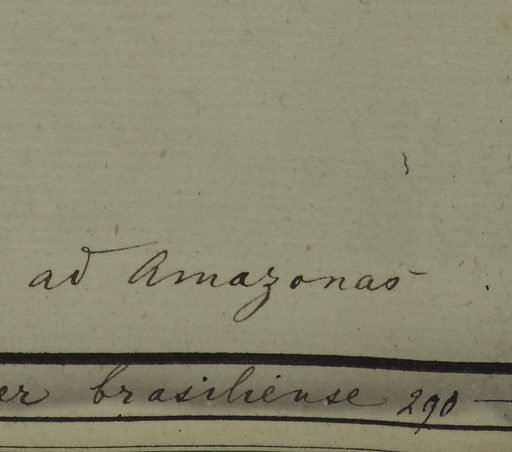 ad Amazonas
er brasiliense 290